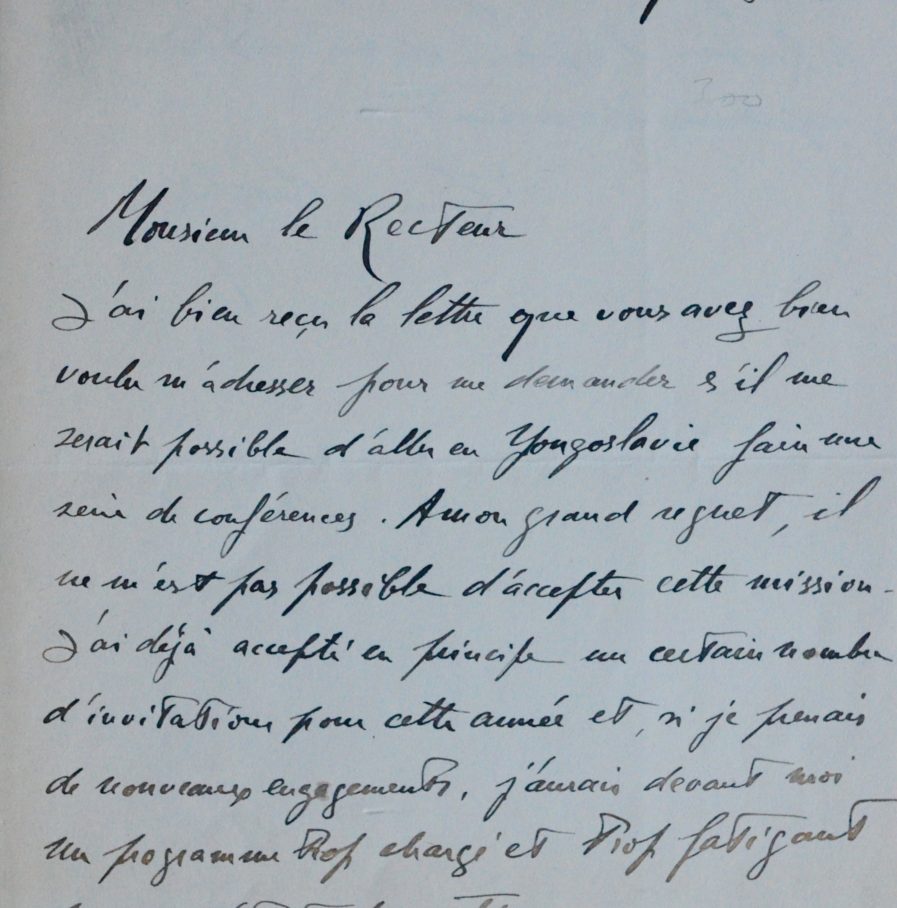 300
Monsieur le Recteur
J'ai bien reçu la lettre que vous avez bien
voulu m'adresser pour me demander s'il me
serait possible d'aller en Yougoslavie faire une
série de conférences. A mon grand regret, il
ne m'est pas possible d'accepter cette mission.
J'ai déjà accepté en principe un certain nombre
d'invitations pour cette année et, si je prenais
de nouveaux engagements, j'aurais devant moi
un programme trop chargé et trop fatigant